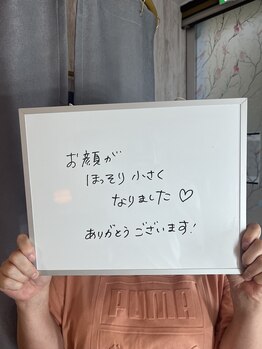 お顔が
ほっそり 小さく
なりました♡
ありがとうございます!
PUMA